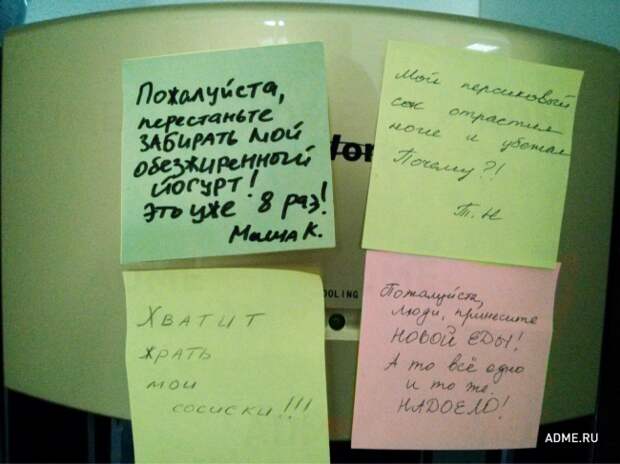 Пожалуйста,
перестаньте
ЗАБИРАТЬ МОЙ
ОБЕЗЖИРЕННЫЙ
ЙОГУРТ!
Это уже 8 раз!
Маша К.
Мой персиковый
сок отрастил
ноги и убежал
Почему?!
Т. Н
ХВАТИТ
ЖРАТЬ
МОИ
СОСИСКИ!!!
OOLING
Пожалуйста,
люди, принесите
НОВОЙ ЕДЫ!
А то всё одно
и то же.
НАДОЕЛО!
ADME.RU